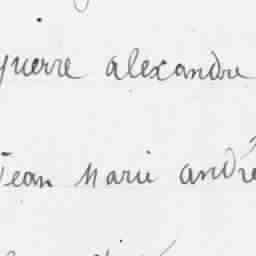 pierre alexandre
Jean Marie andré